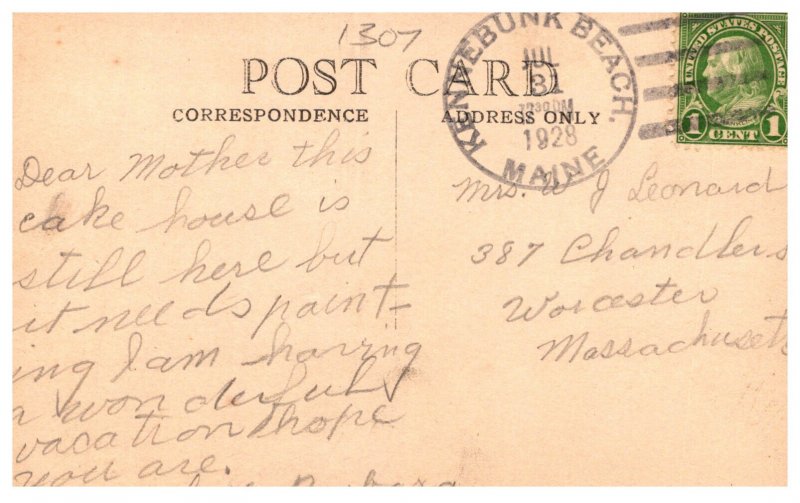 1307
POST CARD
CORRESPONDENCE
ADDRESS ONLY
KENNEBUNK BEACH,
JUL
31
1928
MAINE
UNITED STATES POSTAGE
1 CENT 1
Dear Mother this
cake house is
still here but
it needs paint-
ing I am having
a wonderful
vacation & hope
you are.
Mrs. W J Leonard
387 Chandler
Worcester
Massachuset